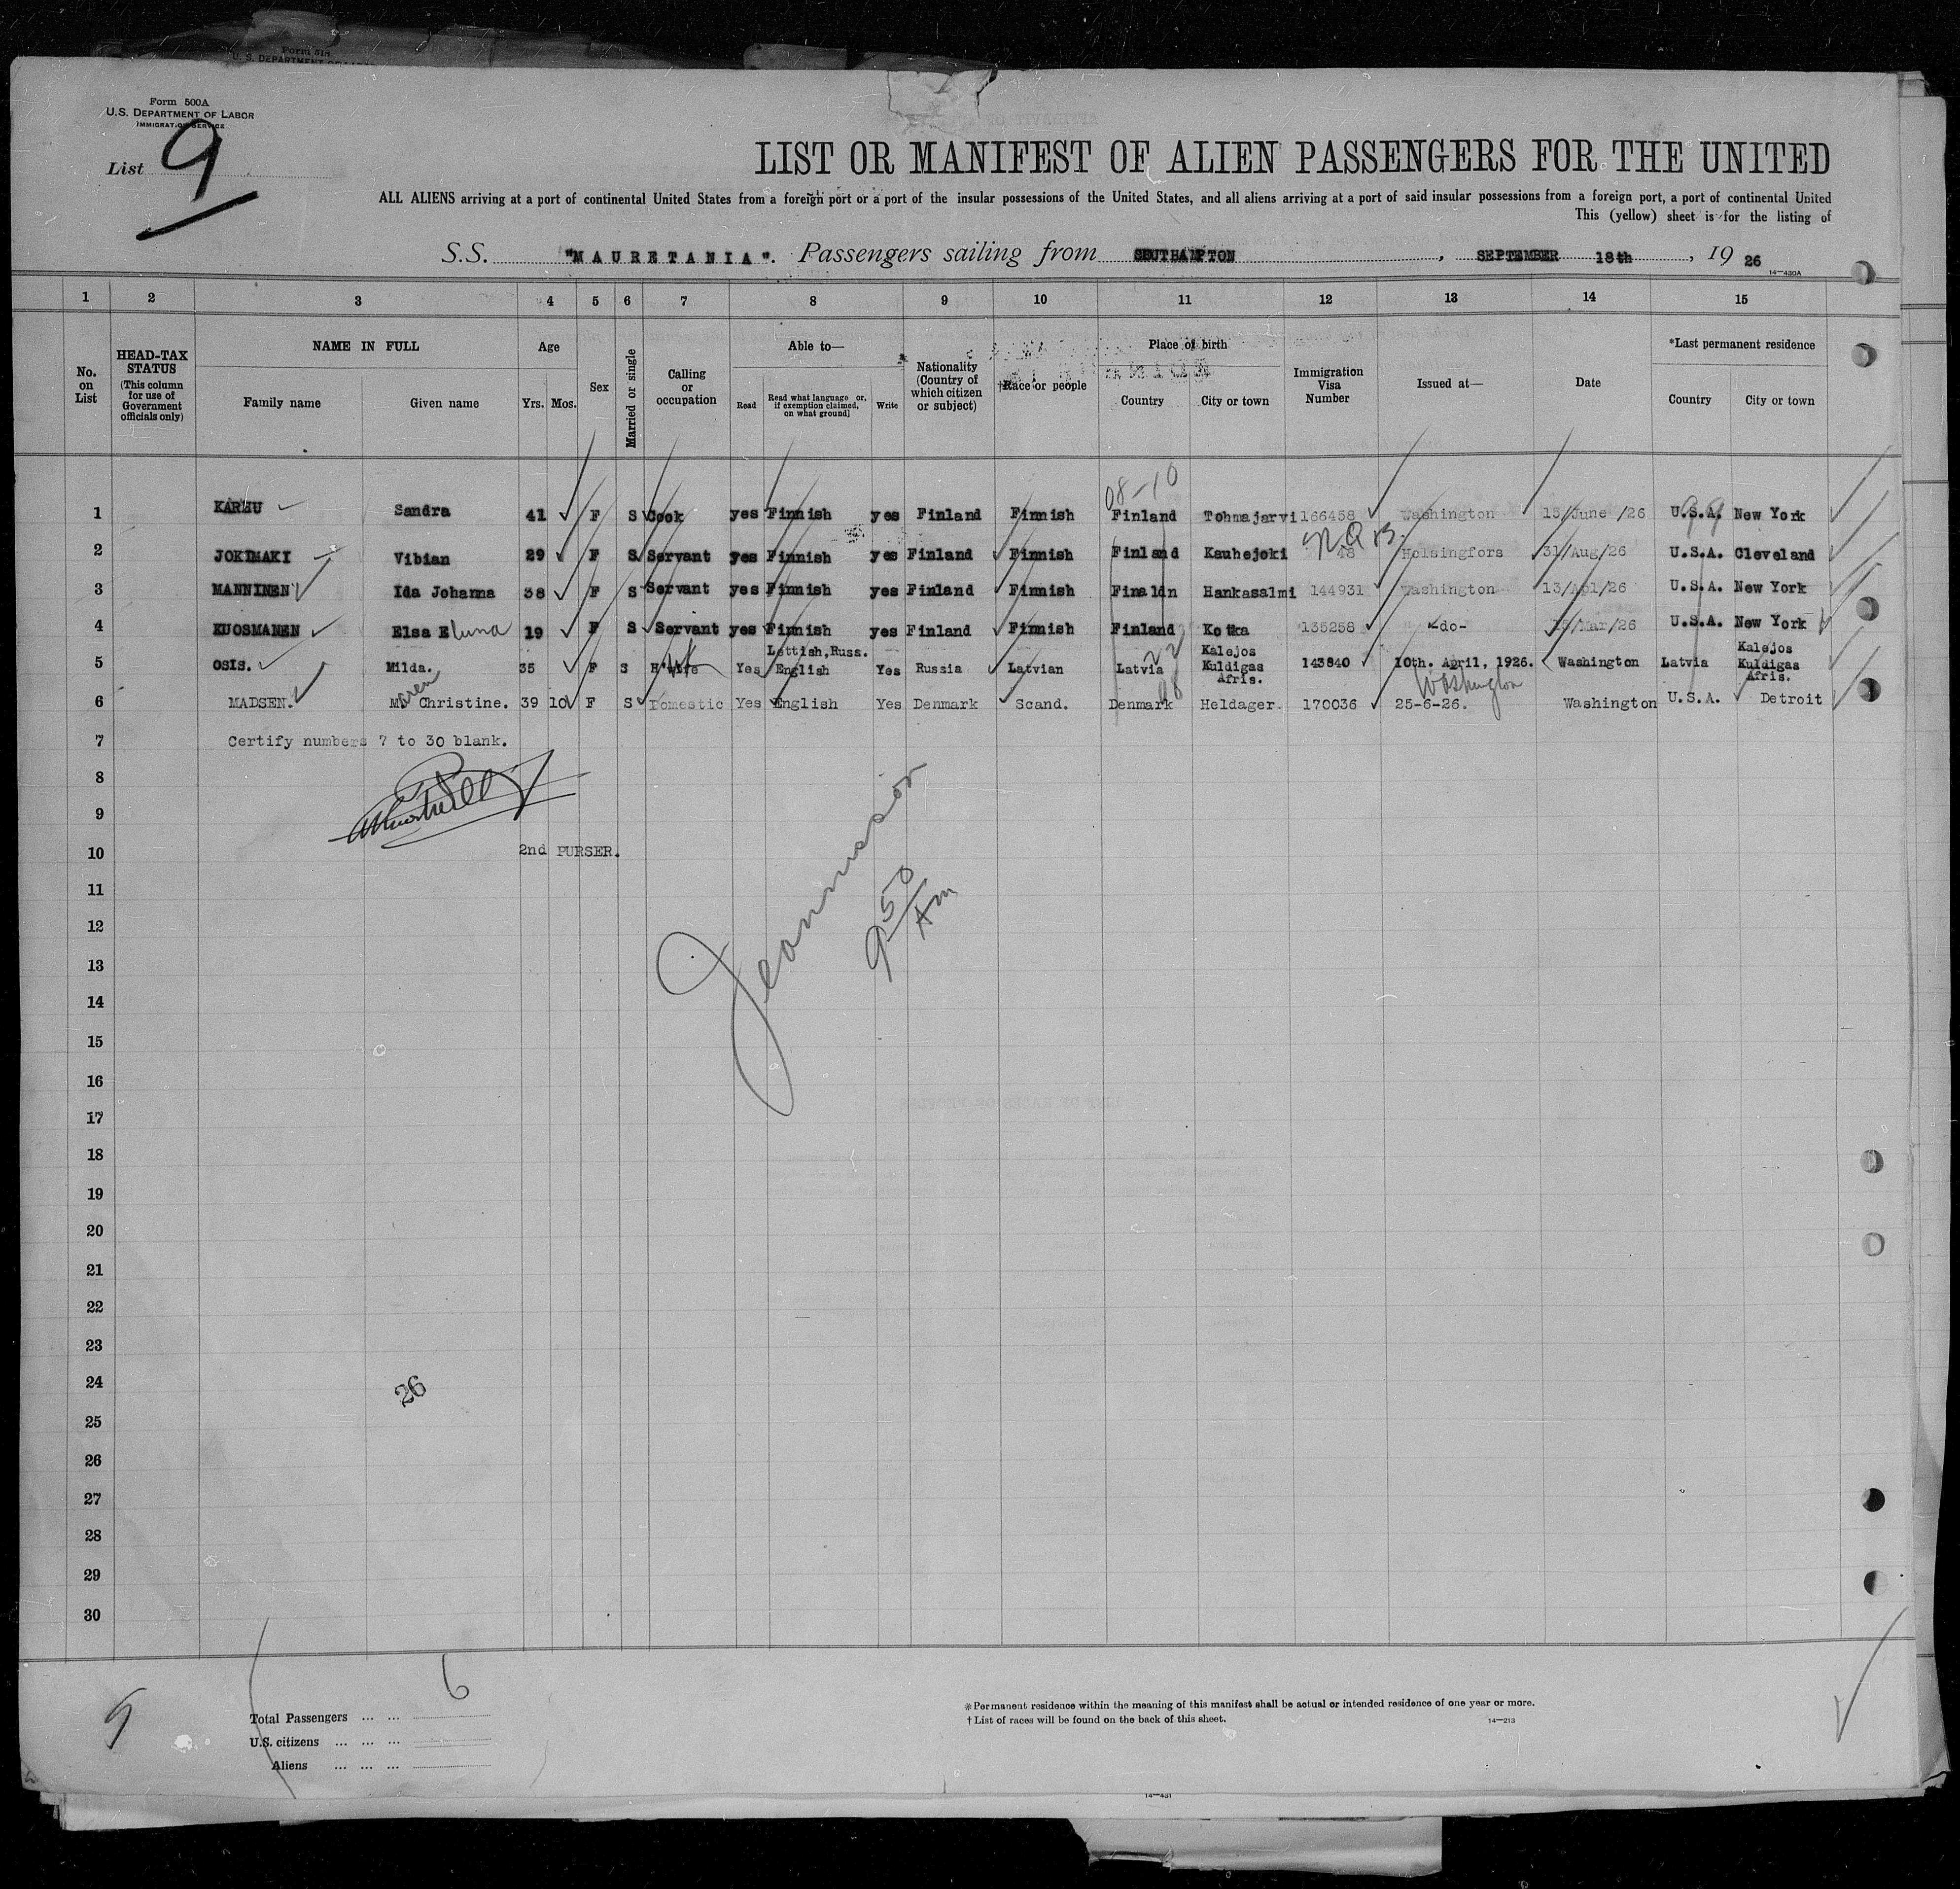 Form 518
U. S. DEPARTMENT OF LABOR
Form 500A
U.S. DEPARTMENT OF LABOR
IMMIGRATION SERVICE
List 9
LIST OR MANIFEST OF ALIEN PASSENGERS FOR THE UNITED
ALL ALIENS arriving at a port of continental United States from a foreign port or a port of the insular possessions of the United States, and all aliens arriving at a port of said insular possessions from a foreign port, a port of continental United
This (yellow) sheet is for the listing of
S.S. "MAURETANIA". Passengers sailing from SOUTHAMPTON, SEPTEMBER 18th, 19 26
14—430A
1 2 3 4 5 6 7 8 9 10 11 12 13 14 15
No. on List
HEAD-TAX STATUS (This column for use of Government officials only)
NAME IN FULL
Family name Given name
Age
Yrs. Mos.
Sex
Married or single
Calling or occupation
Able to—
Read Read what language or, if exemption claimed, on what ground] Write
Nationality (Country of which citizen or subject)
†Race or people
Place of birth
Country City or town
Immigration Visa Number
Issued at—
Date
*Last permanent residence
Country City or town
08-10
1 KARHU Sandra 41 F S Cook yes Finnish yes Finland Finnish Finland Tohmajarvi 166458 Washington 15/June /26 U.S.A. New York
N.Q.B.
2 JOKIMAKI Vibian 29 F S Servant yes Finnish yes Finland Finnish Finland Kauhejoki 48 Helsingfors 31/Aug/26 U.S.A. Cleveland
3 MANNINEN Ida Johanna 38 F S Servant yes Finnish yes Finland Finnish Finaldn Hankasalmi 144931 Washington 13/Apl/26 U.S.A. New York
4 KUOSMANEN Elsa E 19 F S Servant yes Finnish yes Finland Finnish Finland Kotka 135258 -do- /Mar/26 U.S.A. New York
5 OSIS. Milda. 35 F S H'Wife Yes Lettish,Russ. English Yes Russia Latvian Latvia 22 Kalejos Kuldigas Afris. 143840 10th. April, 1926. Washington Latvia Kalejos Kuldigas Afris.
6 MADSEN. Maren Christine. 39 10 F S Domestic Yes English Yes Denmark Scand. Denmark 08 Heldager. 170036 25-6-26. Washington Washington U.S.A. Detroit
7 Certify numbers 7 to 30 blank.
8
9
10 2nd PURSER.
11
12
9 50 Am
13
14
15
16
17
18
19
20
21
22
23
24 26
25
26
27
28
29
30
9
Total Passengers ... ... 6
U.S. citizens ... ... ...
Aliens ... ... ...
*Permanent residence within the meaning of this manifest shall be actual or intended residence of one year or more.
†List of races will be found on the back of this sheet.
14—213
14—431